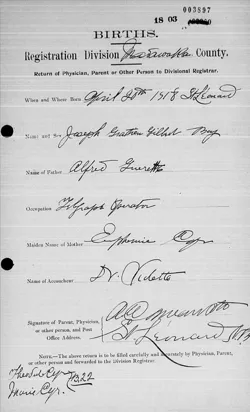 003897
18 03
BIRTHS.
Registration Division Madawaska County.
Return of Physician, Parent or Other Person to Divisional Registrar.
When and Where Born April 20th 1918 St Leonard
Name and Sex Joseph Gilbert Boy
Name of Father Alfred
Occupation Operator
Maiden Name of Mother Euphemie Cyr
Name of Accoucheur Dr. Violette
Signature of Parent, Physician,
or other person, and Post
Office Address.
St Leonard N.B.
NOTE.—The above return is to be filled carefully and accurately by Physician, Parent
or other person and forwarded to the Division Registrar.
Cyr
Cyr. 1322